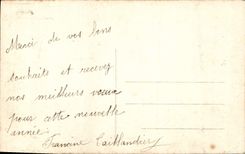 Merci de vos bons
souhaits et recevez
nos meilleurs vœux
pour cette nouvelle
année.
Francine Taillandier